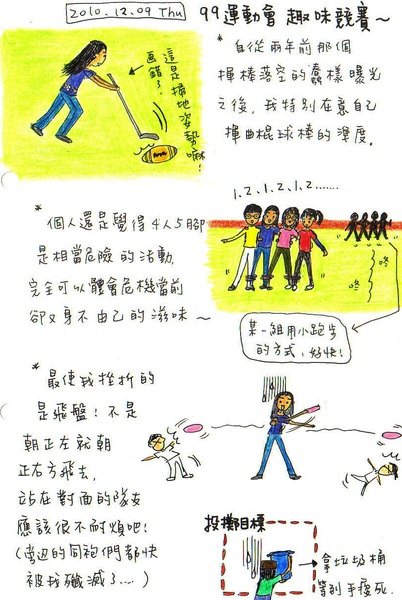 2010.12.09 Thu
99運動會 趣味競賽~
* 自從兩年前那個
揮棒落空的蠢樣曝光
之後, 我特別在意自己
揮曲棍球棒的準度.
畫錯了,
這是掃地姿勢嘛!
1.2.1.2.1.2......
* 個人還是覺得4人5腳
是相當危險的活動,
完全可以體會危機當前
卻又身不由己的滋味~
咚
咚
某一組用小跑步
的方式, 好快!
* 最使我挫折的
是飛盤! 不是
朝正左就朝
正右方飛去,
站在對面的隊友
應該很不耐煩吧!
(旁邊的同袍們都快
被我殲滅了....)
投擲目標
拿垃圾桶
等到手痠死.